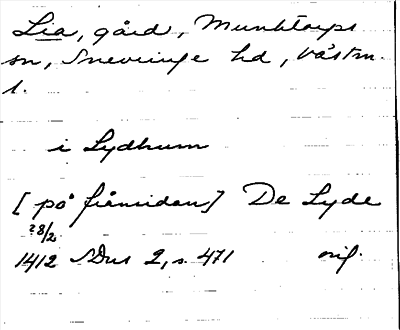 Lia, gård, Munktorps
sn, Snevringe hd, Västm.
l.
i Lydhum
[på frånsidan] De Lyde
28/2
1412 SDns 2, s. 471 orig.